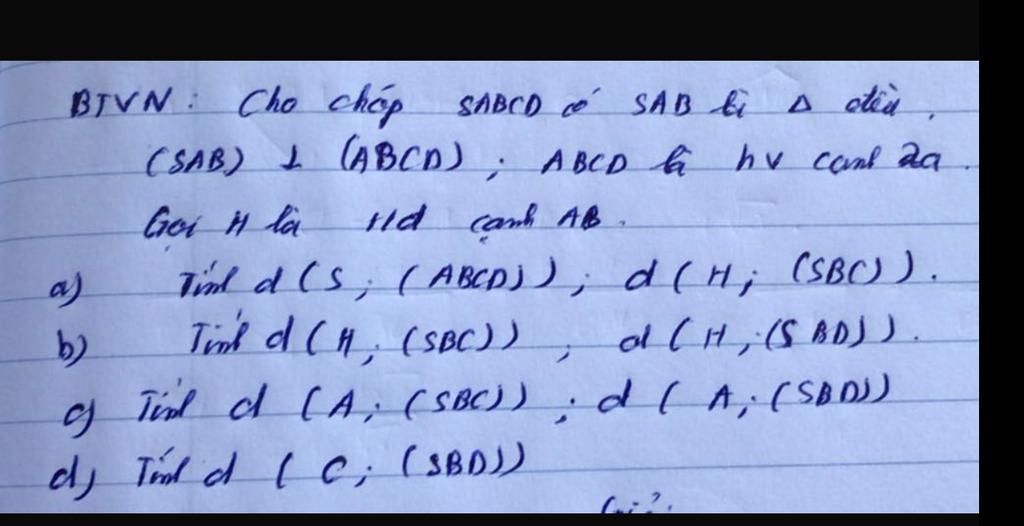 BTVN: Cho chóp SABCD có SAB là Δ đều,
(SAB) ⊥ (ABCD); ABCD là hv cạnh 2a.
Gọi H là t/đ cạnh AB.
a) Tính d(S; (ABCD)); d(H; (SBC)).
b) Tính d(H; (SBC)); d(H; (SBD)).
c) Tính d(A; (SBC)); d(A; (SBD))
d) Tính d(C; (SBD))